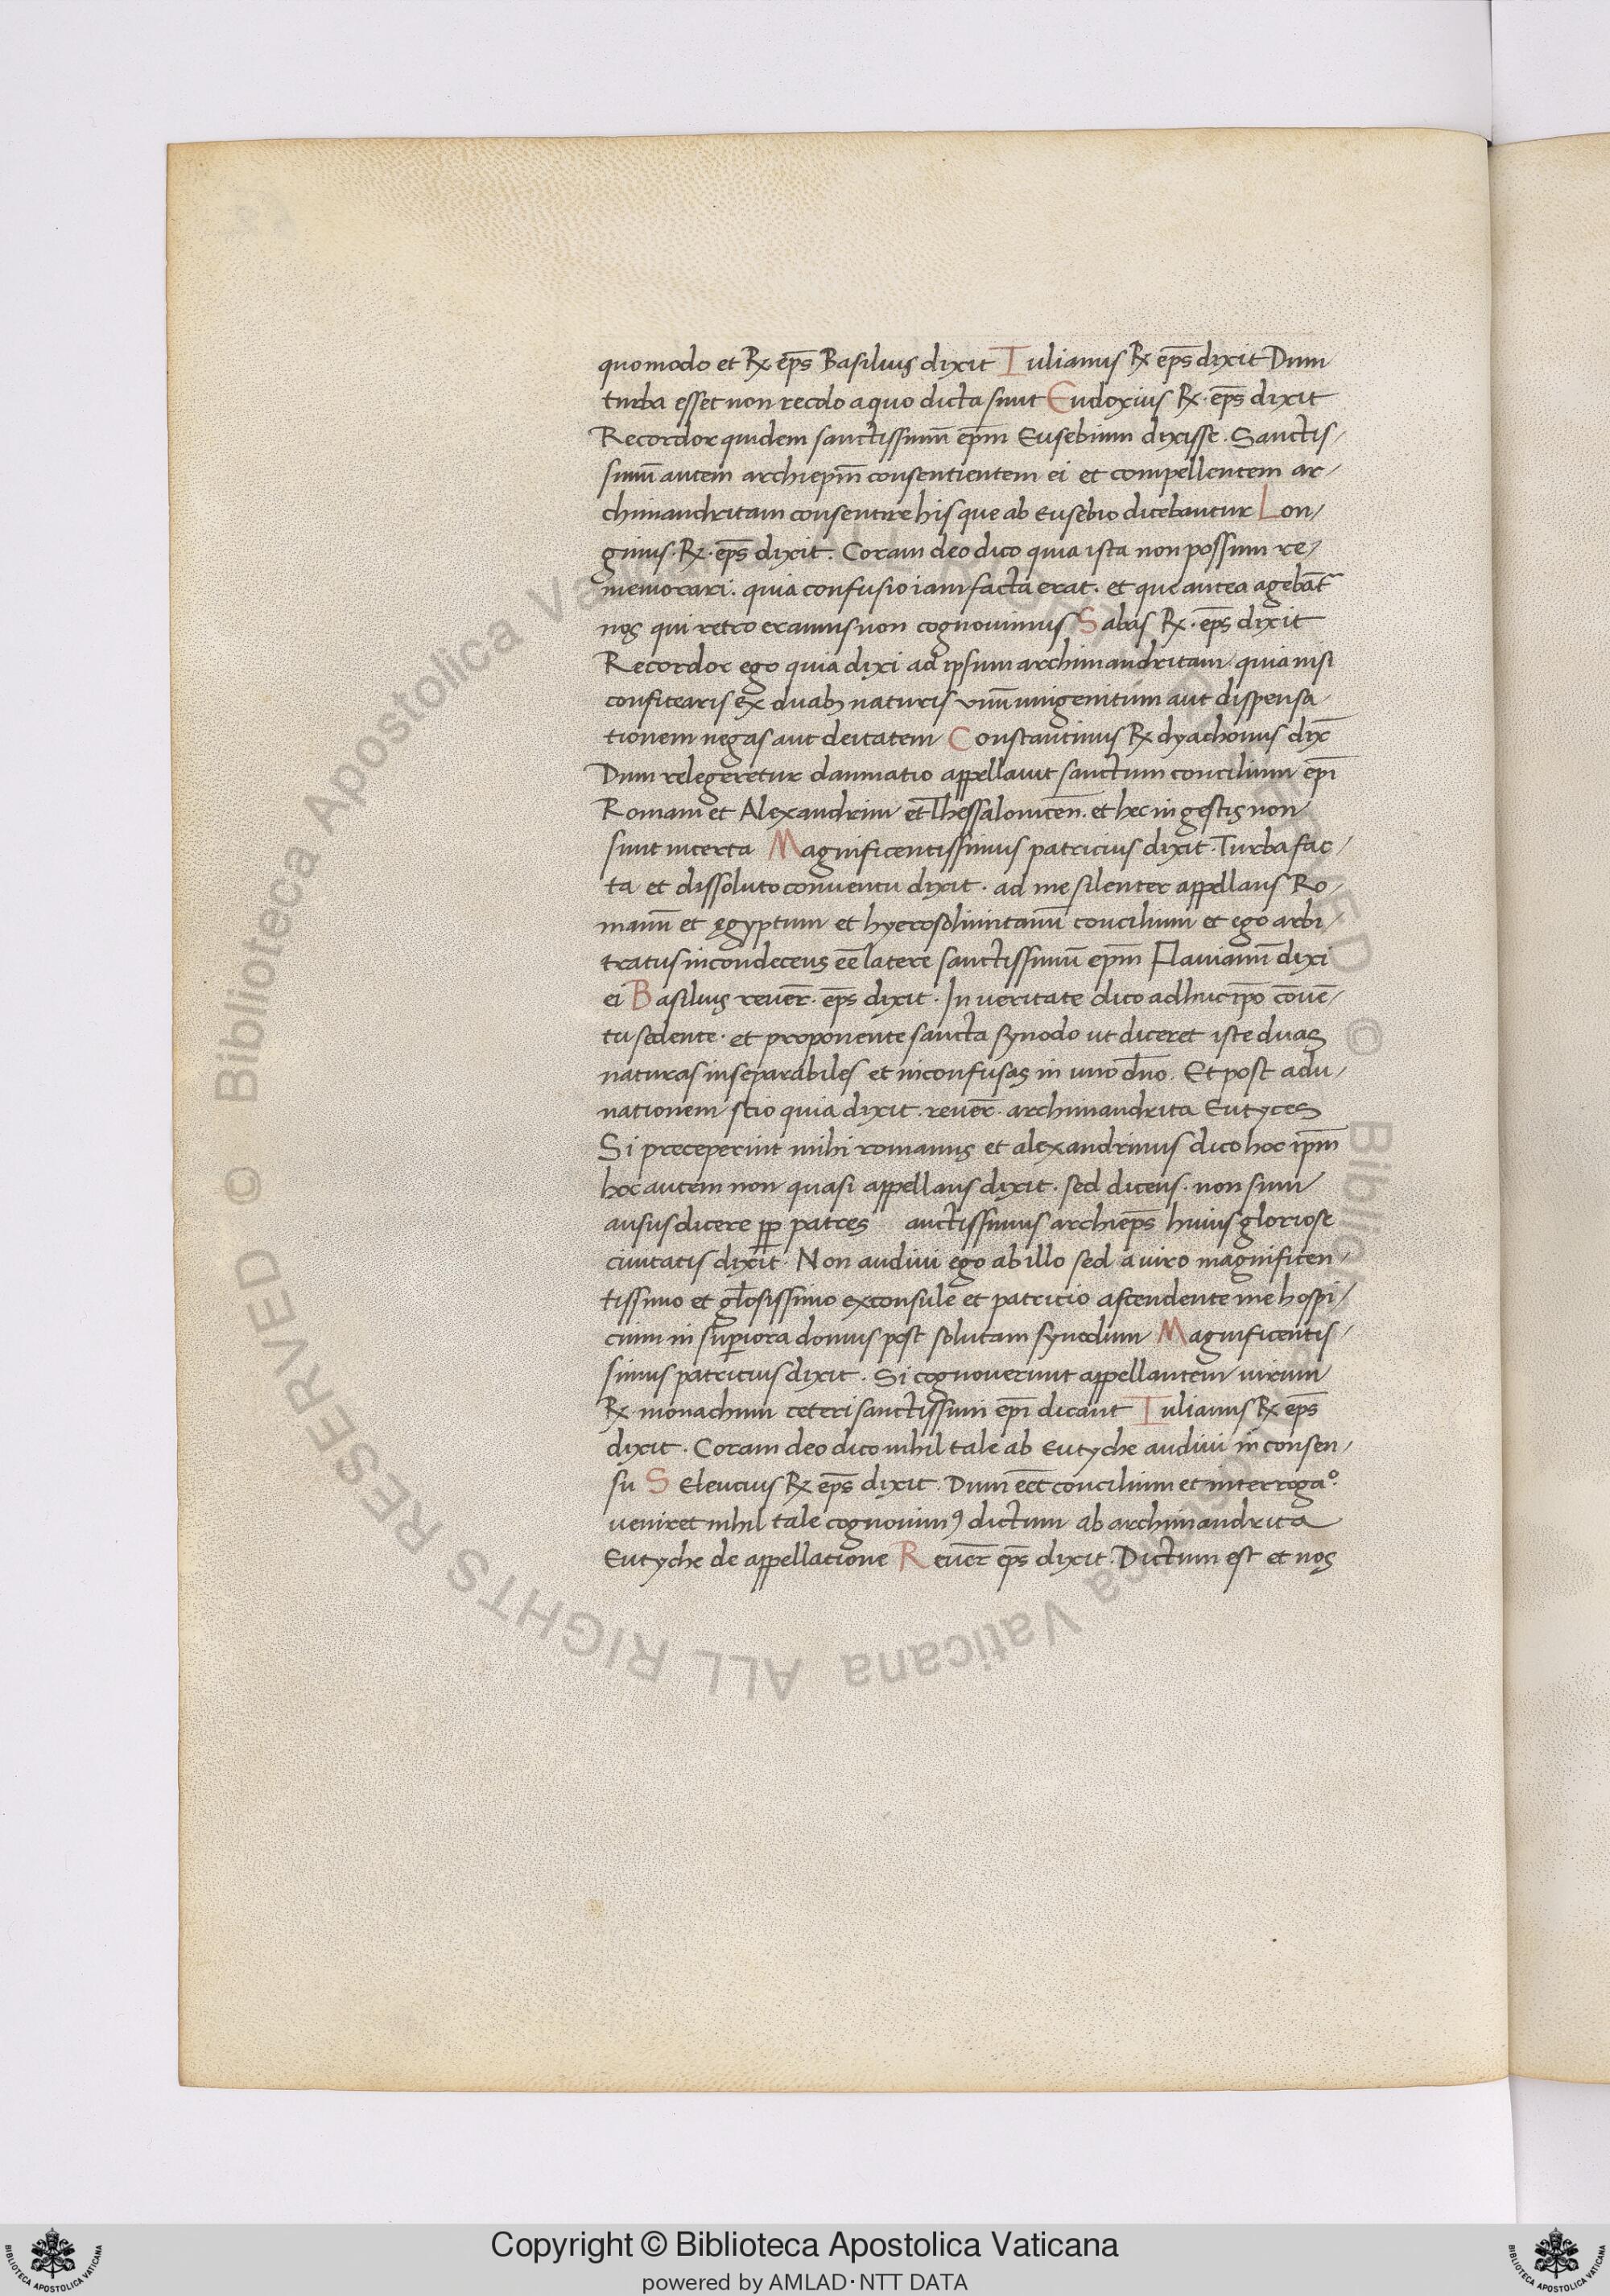 quomodo et Rx eps̄ Basilius dixit Iulianus Rx eps̄ dixit Dum
turba esset non recolo a quo dicta sunt Eudoxius Rx· eps̄ dixit
Recordor quidem sanctissimū ep̄m Eusebium dixisse. Sanctis/
simū autem archiepm̄ consentientem ei et compellentem ar/
chimandritam consentire his que ab Eusebio dicebantur Lon/
ginus· Rx· eps̄ dixit. Coram deo dico quia ista non possum re/
memorari. quia confusio iam facta erat· et que antea agebāt~
nos qui retro eramus non cognovimus Sabas Rx· eps̄ dixit
Recordor ego quia dixi ad ipsum archimandritam quia nisi
confitearis ex duabꝫ naturis vnū unigenitum aut dispensa/
tionem negas aut deitatem Constantinus Rx dyachonus dix̄
Dum relegeretur damnatio appellauit sanctum concilium epī
Romani et Alexandrini et Thessalonicen̄. et hec in gestis non
sunt incerta Magnificentissimus patricius dixit. Turba fac/
ta et dissoluto conventu dixit· ad me silenter appellans Ro/
manū et ęgyptum et hyerosolimitanū concilium et ego arbi/
tratus incondecens eē latere sanctissimū epm̄ Flauianū dixi
ei Basilius reuer̄· eps̄ dixit· In veritate dico adhuc ip̄o cōuē/
tu sedente· et proponente sancta synodo ut diceret iste duas
naturas inseparabiles et inconfusas in uno dn̄o. Et post adu/
nationem scio quia dixit. reuer̄· archimandrita Eutyces
Si preceperint mihi romanus et alexandrinus dico hoc ip̄m
hoc autem non quasi appellans dixit· sed dicens· non sum
ausus dicere pp̄ patres auctissimus archieps̄ huius gloriose
ciuitatis dixit· Non audiui ego ab illo sed a uiro magnificen/
tissimo et gl̄osissimo exconsule et patricio ascendente me hospi/
cium in sup̄iora domus post solutam synodum Magnificentis/
simus patricius dixit. Si cognouerunt appellantem uirum
Rx monachum ceteri sanctissimi epī dicant Iulianus Rx eps̄
dixit· Coram deo dico nihil tale ab Eutyche audiui in consen/
su Seleucius Rx eps̄ dixit Dum eēt concilium et interrogaº·
ueniret nihil tale cognouimꝰ dictum ab archimandrita
Eutyche de appellatione Reuer̄ eps̄ dixit· Dictum est et nos
Copyright © Biblioteca Apostolica Vaticana
powered by AMLAD·NTT DATA
© Biblioteca Apostolica Vaticana ALL RIGHTS RESERVED